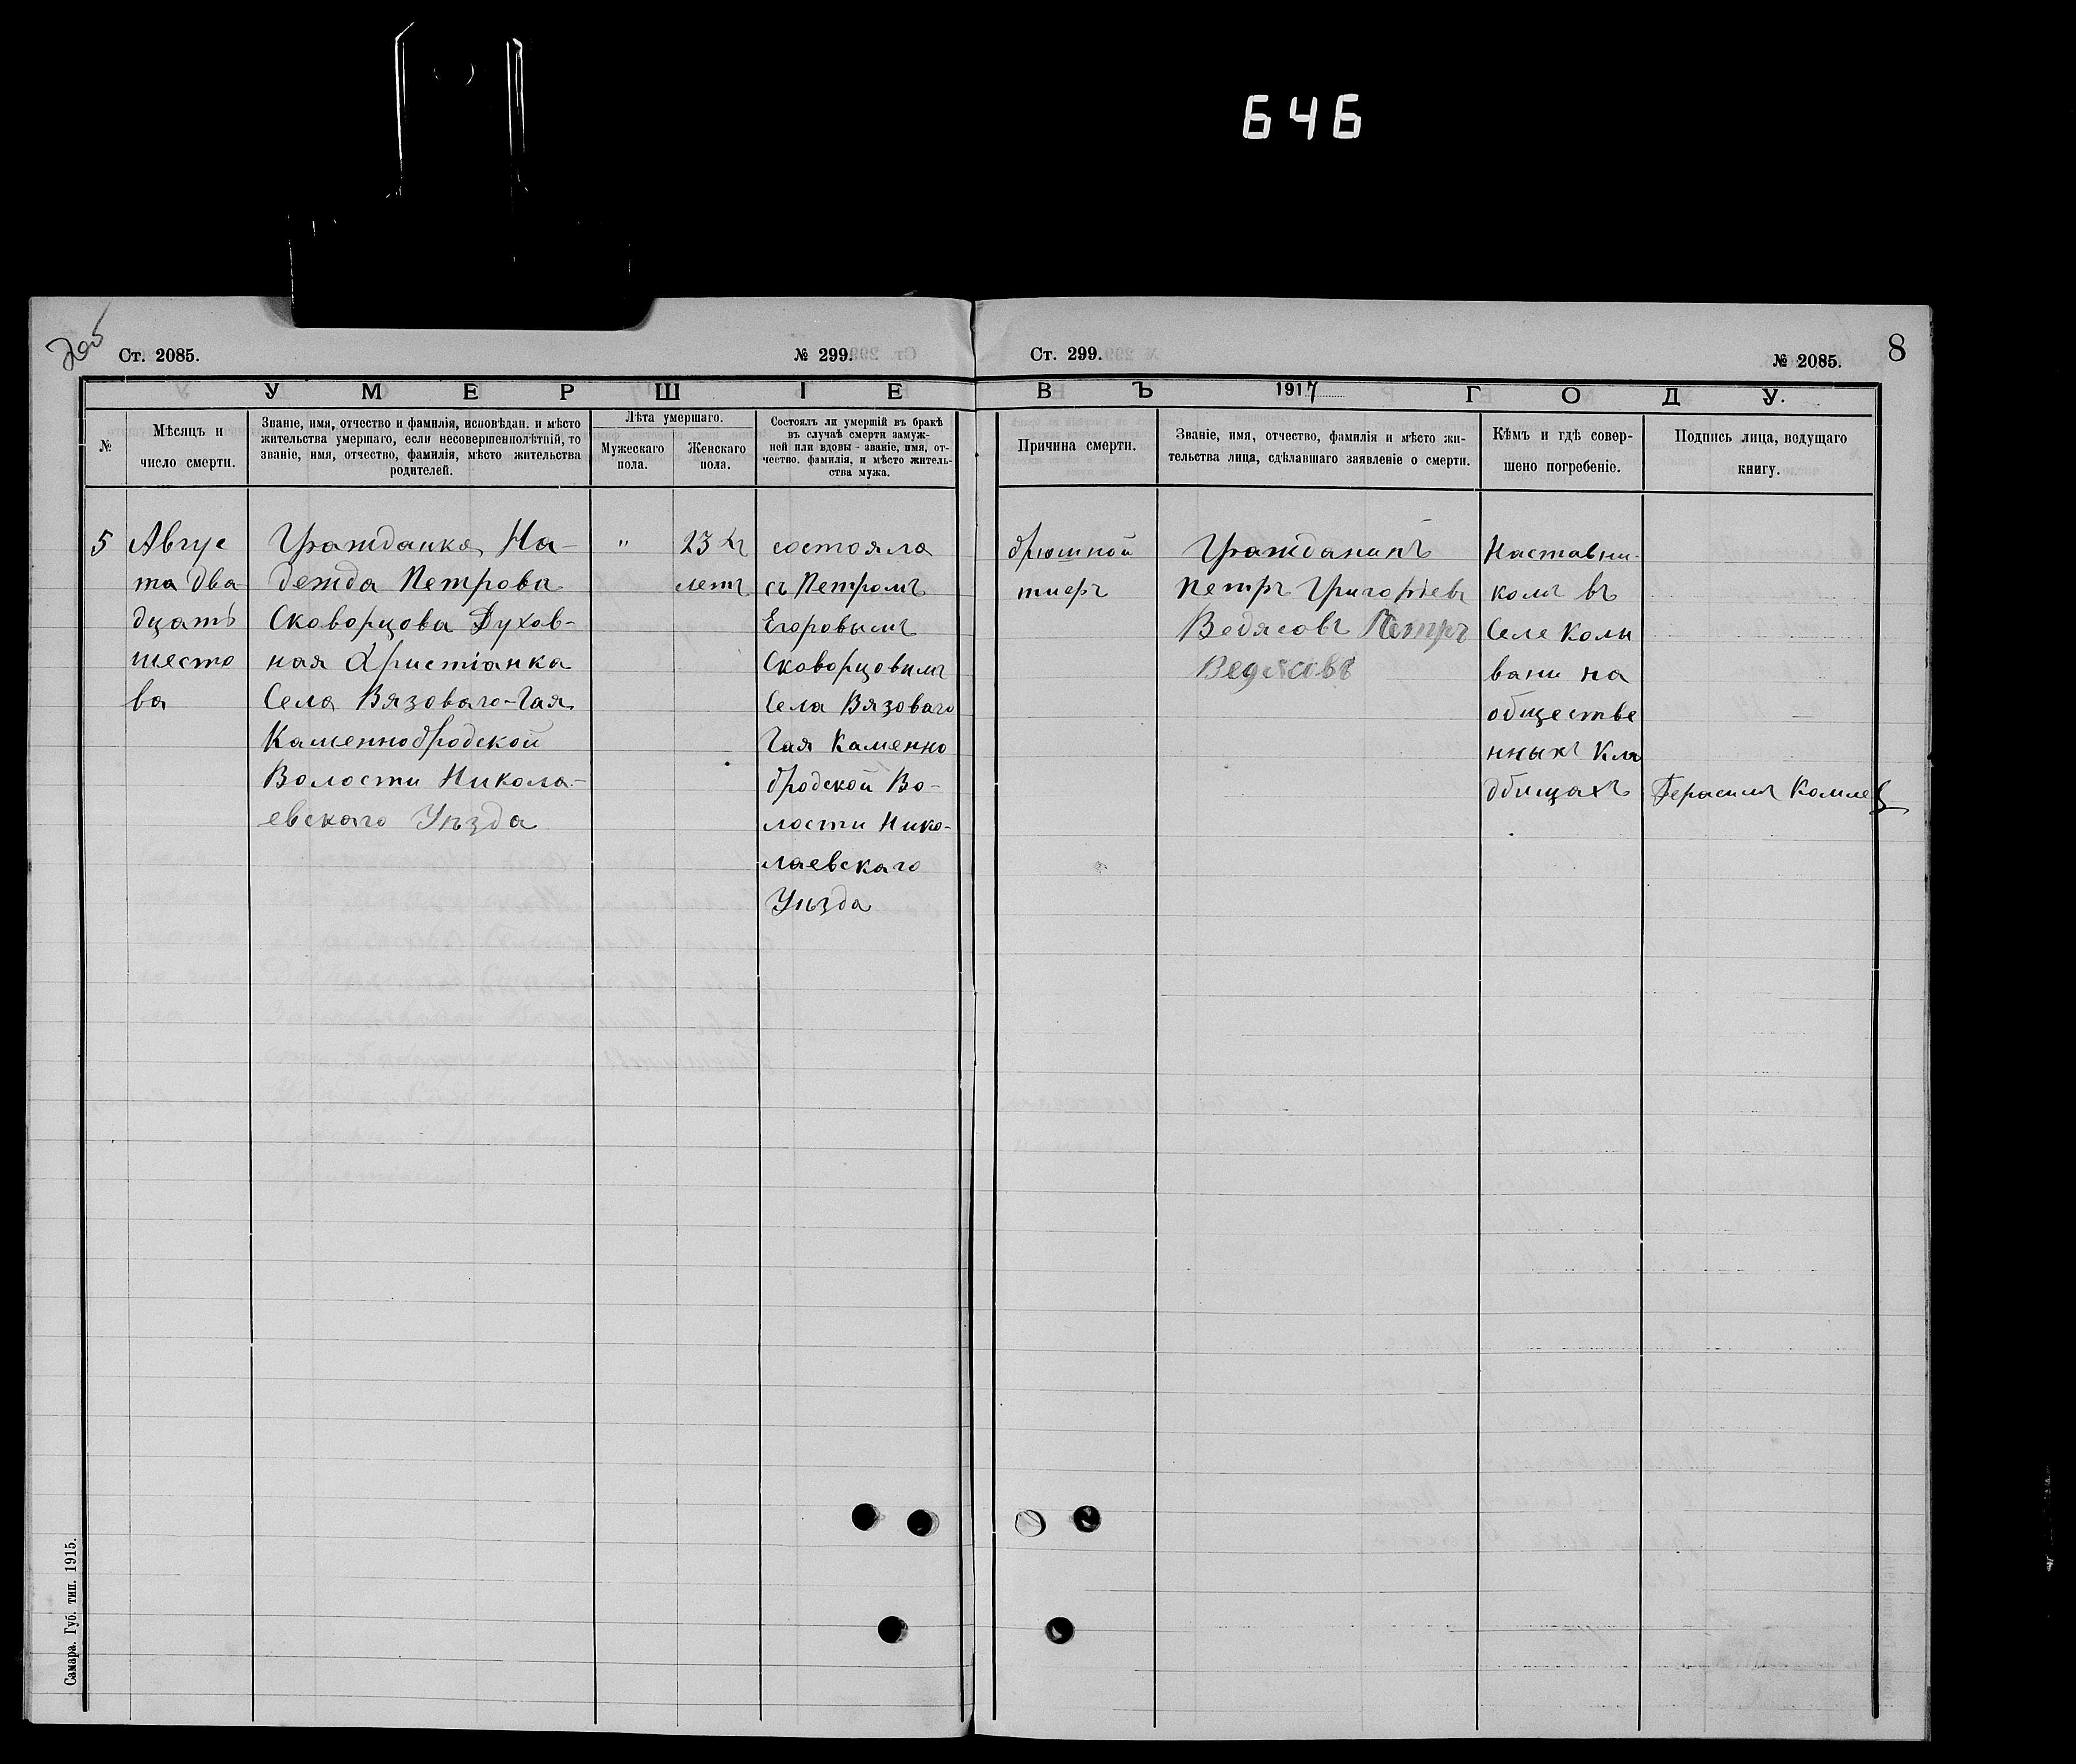 646
Ст. 2085.
№ 299.
Ст. 299.
№ 2085.
8
УМЕРШІЕ
ВЪ 1917 ГОДУ.
№
Мѣсяцъ и
число смерти.
Званіе, имя, отчество и фамилія, исповѣдан. и мѣсто
жительства умершаго, если несовершеннолѣтній, то
званіе, имя, отчество, фамилія, мѣсто жительства
родителей.
Лѣта умершаго.
Мужескаго
пола.
Женскаго
пола.
Состоялъ ли умершій въ бракѣ
въ случаѣ смерти замуж-
ней или вдовы - званіе, имя, от-
чество, фамилія, и мѣсто житель-
ства мужа.
Причина смерти.
Званіе, имя, отчество, фамилія и мѣсто жи-
тельства лица, сдѣлавшаго заявленіе о смерти.
Кѣмъ и гдѣ совер-
шено погребеніе.
Подпись лица, ведущаго
книгу.
5
Авгус
та два
дцать
шесто
ва
Гражданка На-
дежда Петрова
Скворцова Духов-
ная Христіанка
Села Вязоваго-Гая
Каменнобродской
Волости Никола-
евскаго Уѣзда
"
23
летъ
состояла
съ Петромъ
Егоровымъ
Скворцовымъ
Села Вязоваго
Гая Каменно
бродской Во-
лости Нико-
лаевскаго
Уѣзда
брюшной
тифъ
Гражданинъ
Петръ Григорiевъ
Ведясовъ Петръ
Ведясовъ
Наставни-
комъ въ
Селе Колы
вани на
обществе
нныхъ Кла
дбищахъ
Герасимъ
Самара. Губ. тип. 1915.